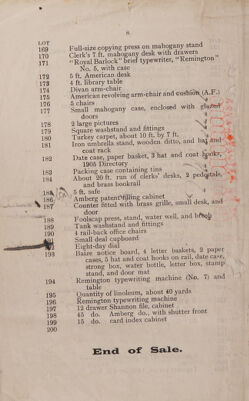 8
LOT
169 Full-size copying press on mahogany stand
170 Clerk's 7 ft. mahogany desk with drawers
171 "Royal Barlock" brief typewriter, "Remington"
No. 5, with case
172 5 ft. American desk
173 4 ft. library table
174 Divan arm-chair
175 American revolving arm-chair and cushion (A.F.)
176 5 chairs
177 Small mahogany case, enclosed with glazed
doors
178 2 large pictures
179 Square washstand and fittings
180 Turkey carpet, about 10 ft. by 7 ft.
181 Iron umbrella stand, wooden ditto, and hat and
coat rack
182 Date case, paper basket, 3 hat and coat hooks,
1905 Directory
183 Packing case containing tins
184 About 20 ft. run of clerks' desks, 2 pedestals,
and brass bookrail
185 5 ft. safe
186 Amberg patent filing cabinet
187 Counter fitted with brass grille, small desk, and
door
188 Foolscap press, stand, water well, and brush
189 Tank washstand and fittings
190 4 rail-back office chairs
Small deal cupboard
Eight-day dial
193 Baize notice board, 4 letter baskets, 2 paper
cases, 5 hat and coat hooks on rail, date case,
strong box, water bottle, letter box, stamp
stand, and door mat
194 Remington typewriting machine (No. 7) and
table
195 Quantity of linoleum, about 40 yards
196 Remington typewriting machine
197 12 drawer Shannon file, cabinet
198 45 do. Amberg do., with shutter front
199 15 do. card index cabinet
200
End of Sale.